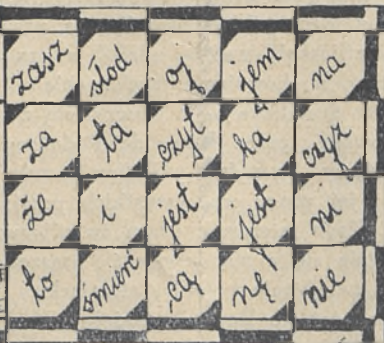 zasz słod oj jem na
za ta czyt ka czyz
że i jest jest ni
to śmierć cą nę nie